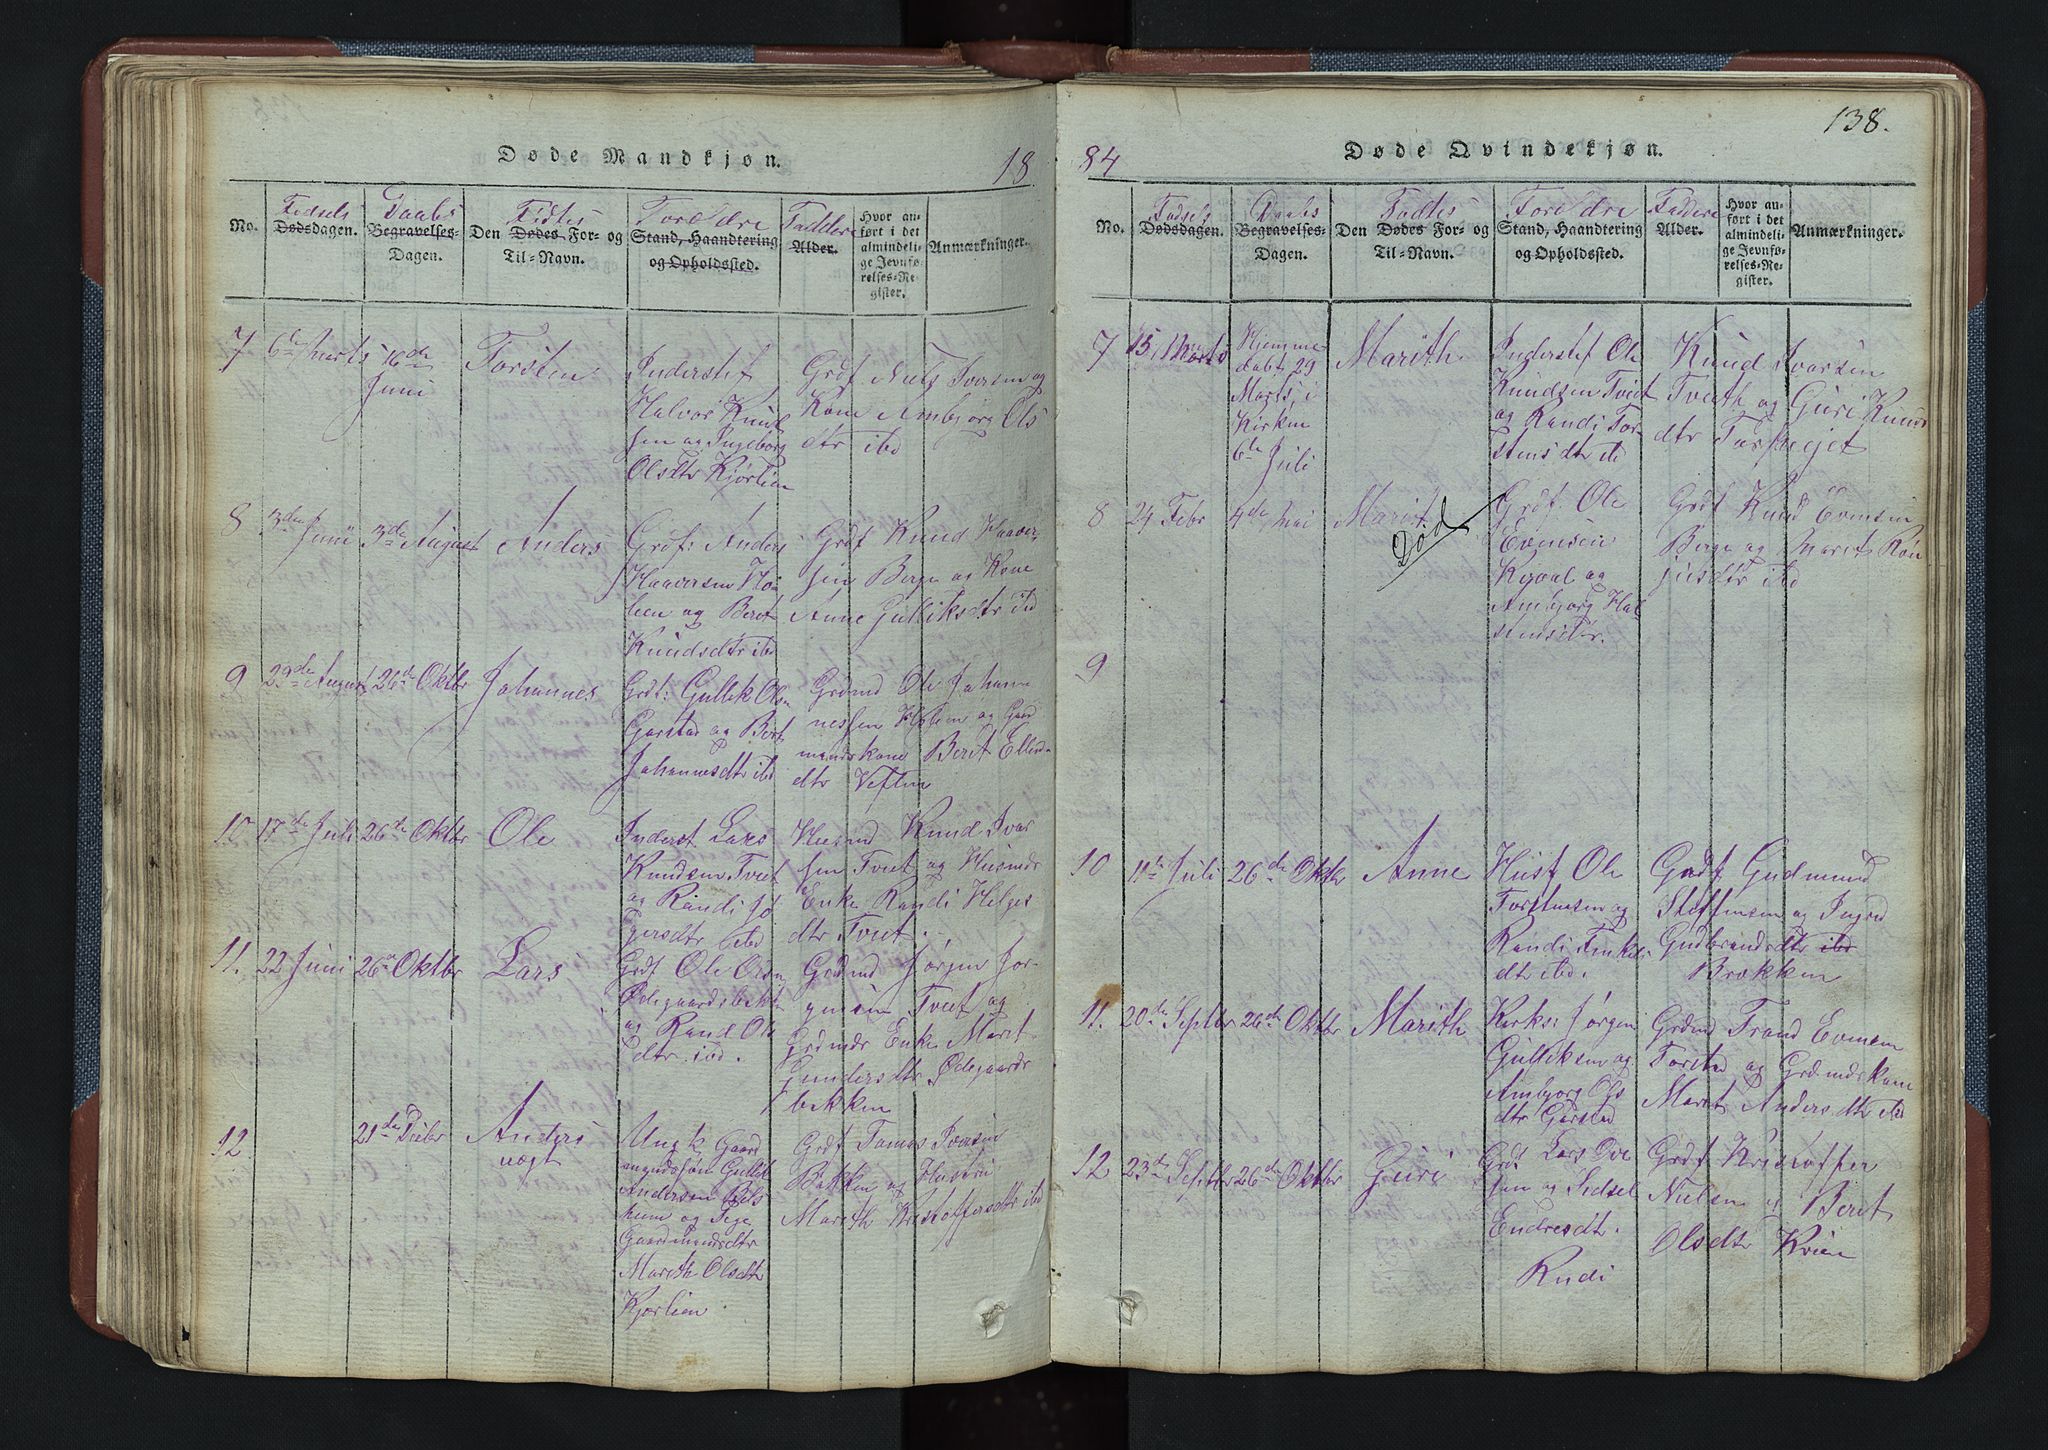 Døde Mandkjøn.
18
No.
Fødsels
Dødsdagen.
Daabs
Begravelses-
Dagen.
Den Dødes For- og
Til-Navn.
Forældre
Stand, Haandtering
og Opholdssted.
Faddere
Alder.
Hvor an-
ført i det
almindeli-
ge Jevnfø-
relses-Re-
gister.
Anmærkninger.
7
6te Marts
16de
Juni
Torsten
Inderstef
Halvor Knud
sen og Ingeborg
Olsdtr Kjørlien
Grdf Niels Iversen og
Kone Ambjørg Ols
dtr ibd
8
3die Juni
3die August
Anders
Grdf: Anders
Haaversen
og Berit
Knudsdtr ibd
Grdf Knud Haaver
sen Berge og Kone
Anne Gulliksdtr ibd
9
29de August
26de Oktbr
Johannes
Grdf: Gullik Olsn
Garstad og Berit
Johannesdtr ibd
Grdmd Ole Johan
nessen og Gaard
mandskone Berit Ellend
dtr Veflen
10
17de Juli
26de Oktbr
Ole
Inderst Lars
Knudsen Tveit
og Randi Jø
gersdtr ibd
Husmd Knud Ivar
sen Tveit og Husmds
Enke Randi Helges
dtr Tveit.
11.
22 Juni
26de Oktbr
Lars
Grdf Ole Olsn
Ødegaardsbakk
og Rand Ols
dtr ibd.
Grdmd Jørgen Jør-
gensen Tveit og
Grdmds Enke Marit
Gundersdtr Ødegaards
bakken
12
21de Decbr
Anders
uægt
Ungk Gaard
mandssøn Gullik
Andersen
og Pige
Gaardmandsdtr
Marith Olsdtr
Kjørlien
Grdf Tomas Iversen
Bakken og Hustru
Marith Kristoffersdtr ibd
138.
84
Døde Qvindekjøn.
No.
Fødsels
Dødsdagen.
Daabs
Begravelses-
Dagen.
Den Dødes For- og
Til-Navn.
Forældre
Stand, Haandtering
og Opholdssted.
Faddere
Alder.
Hvor an-
ført i det
almindeli-
ge Jevnfø-
relses-Re-
gister.
Anmærkninger.
7
15 Marts
Hjemme
døbt 29
Marts, i
Kirken
6te Juli
Marith
Inderstef Ole
Knudsen Tveit
og Randi Tor-
stensdtr ibd
Knud Ivarsen
Tveith og Guri Knuds
dtr
8
24 Febr
4de Mai
Marit
Død
Grdf. Ole
Evensen
og
Ambjørg Hal
stensdtr.
Grdf Knud Evensen
Berge og Marit
ibd
9
10
11te Juli
26de Oktbr
Anne
Husf Ole
Torstensen og
Randi
dtr ibd.
Grdf Gudmund
Steffensen og Ingrid
Gudbrandsdtr ibd
Brækken
11.
20de Septbr
26de Oktbr
Marith
Kirks: Jørgen
Gulliksen og
Ambjørg Ols
dtr Garstad
Grdmd Trond Evensen
Torstad og Grdmdskone
Marit Andersdtr ibd
12
23de Septbr
26de Oktbr
Guri
Grdf Lars Ove
sen og Sidsel
Endresdtr.
Rudi
Grdf Kristoffer
Nielsen og Berit
Olsdtr Kvien